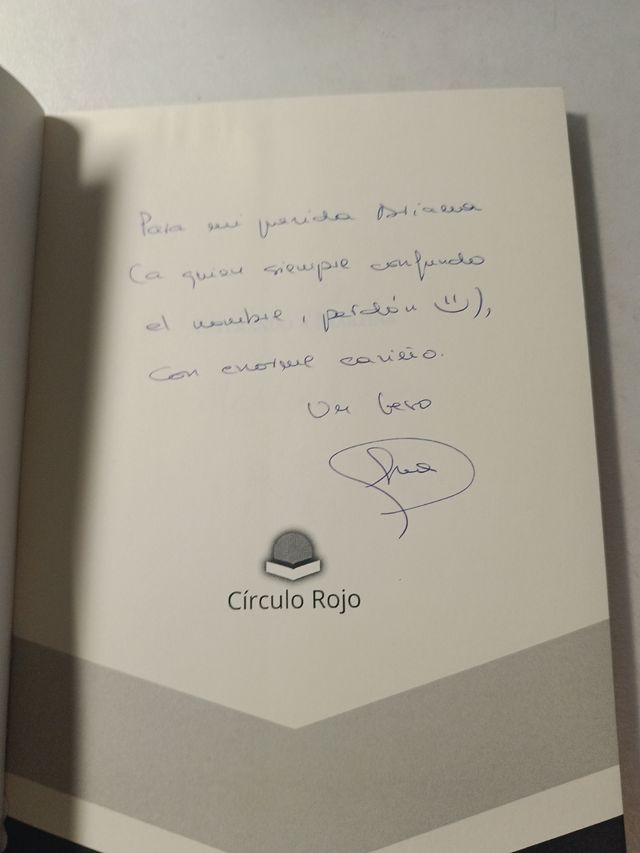 Para mi querida Ariana
(a quien siempre confundo
el nombre, perdón :)),
con enorme cariño.
Un beso
Círculo Rojo